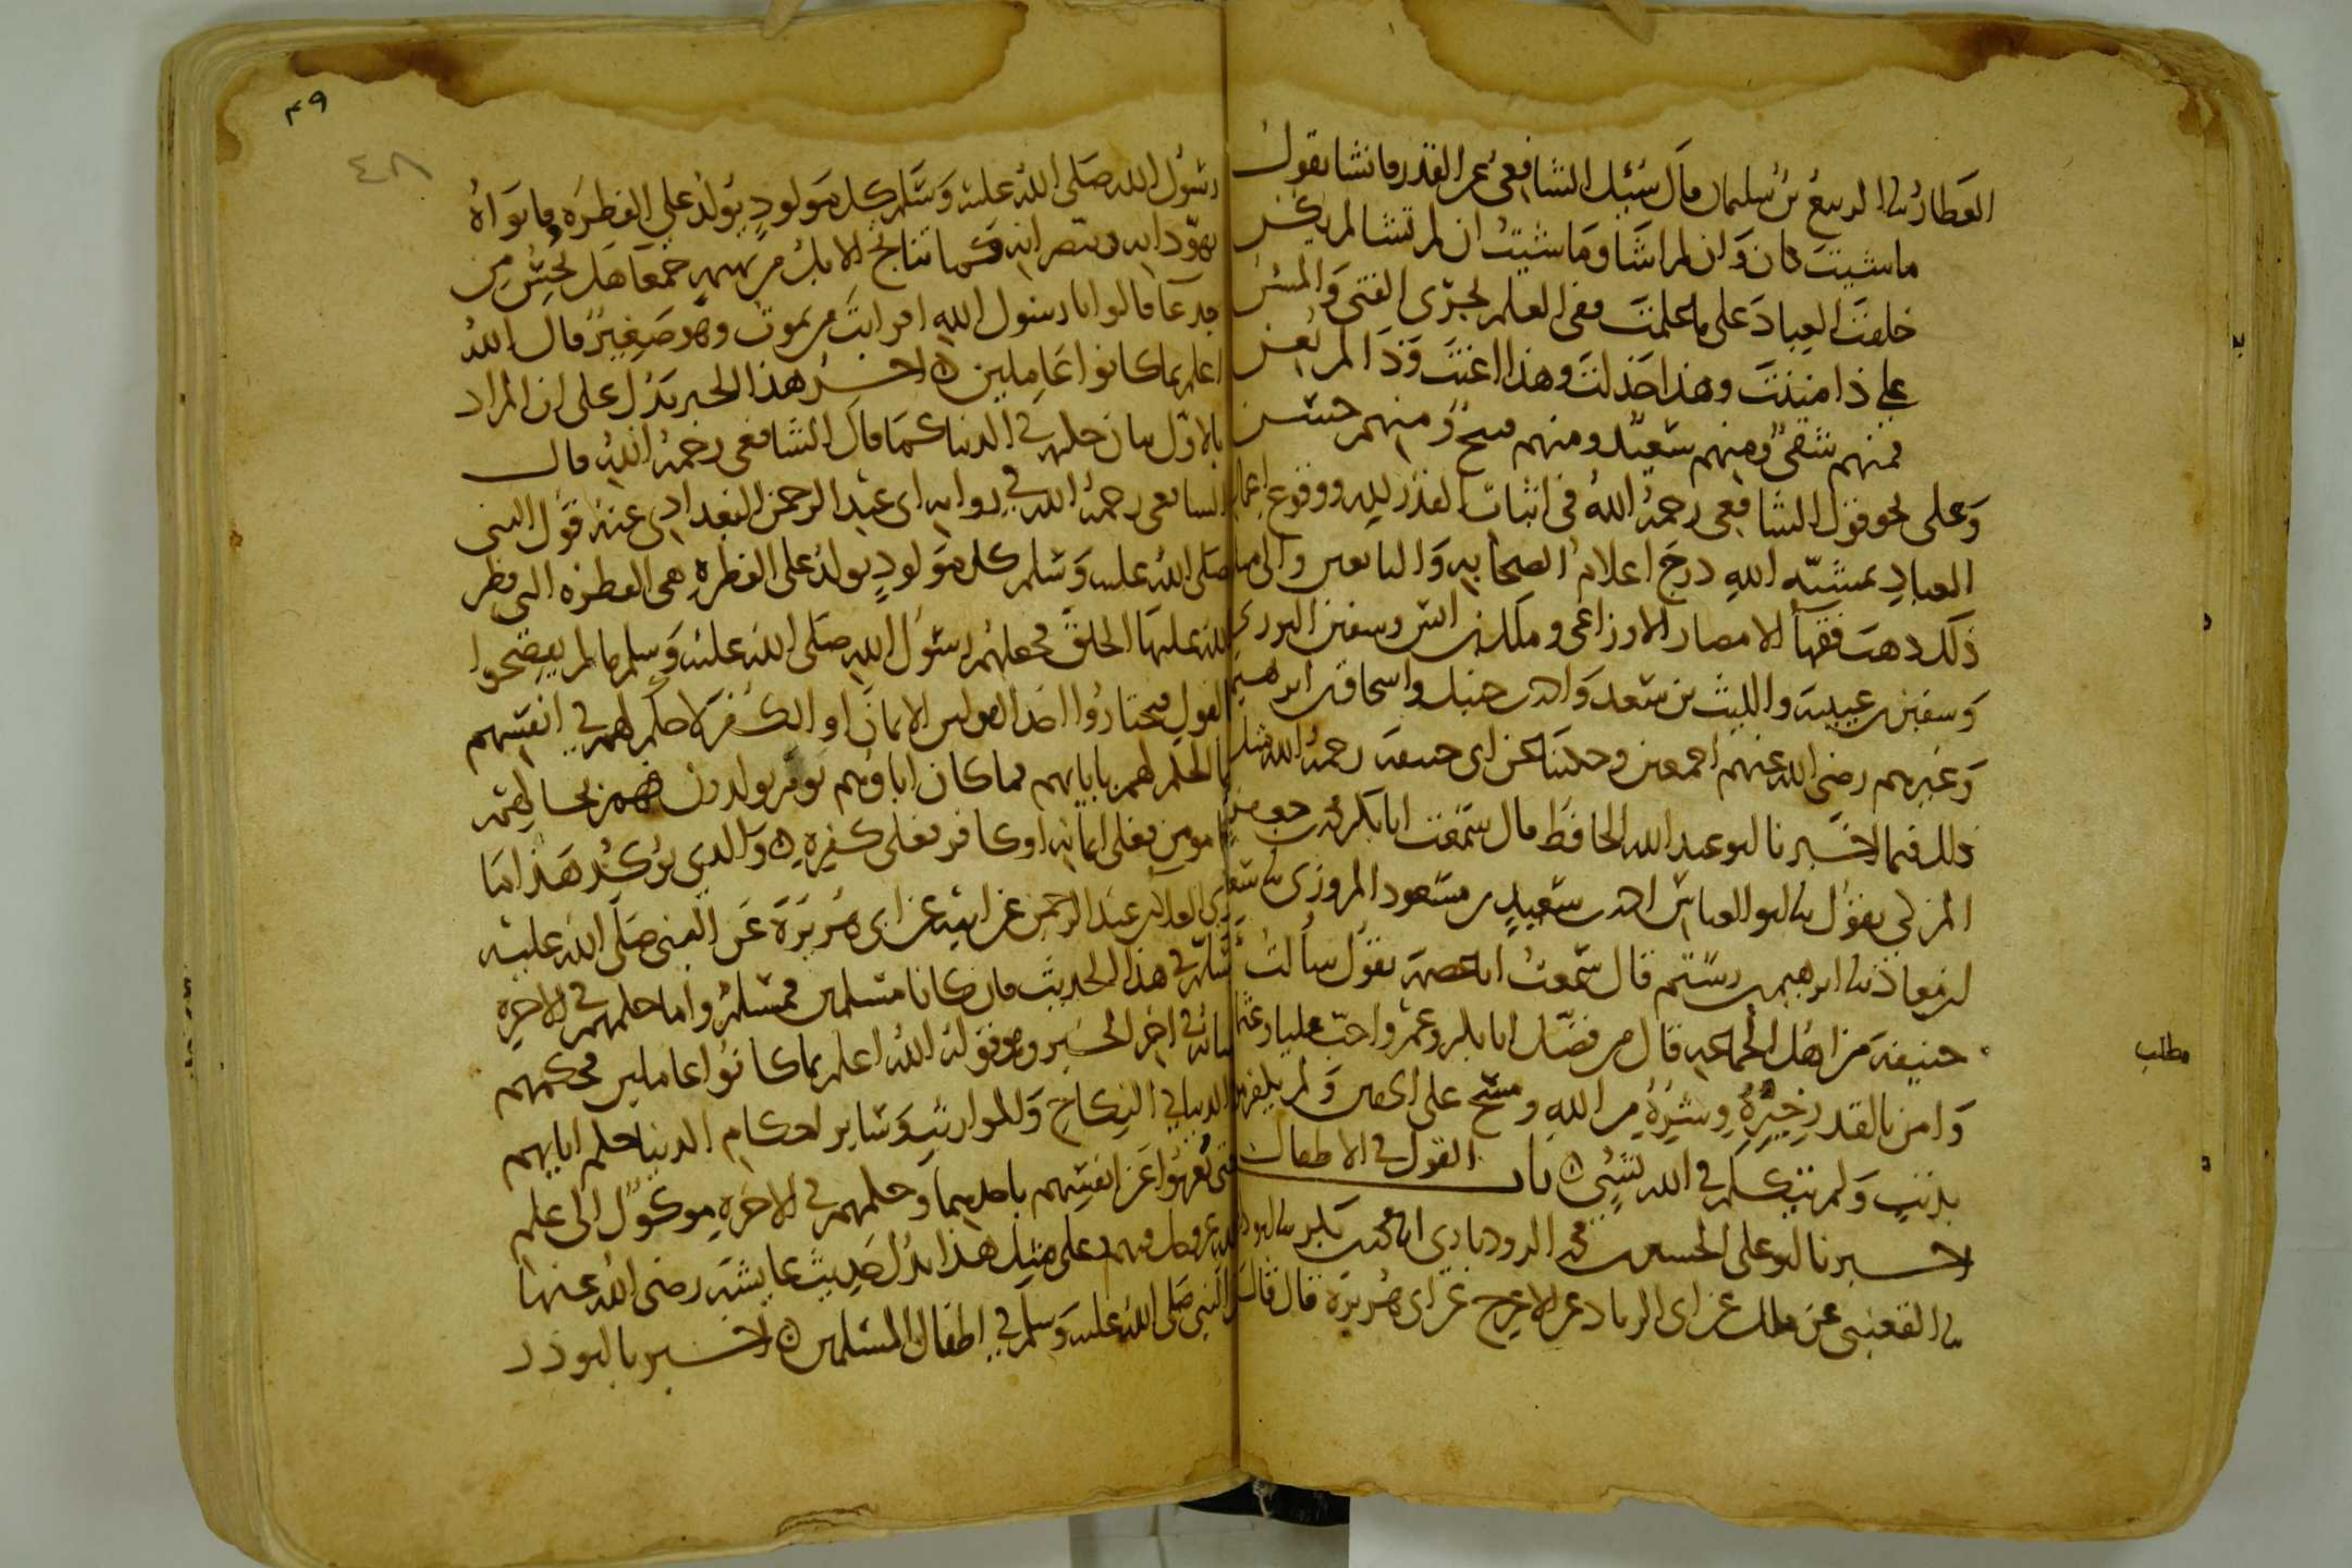 العطار نا الربيع بن سليمان قال سئل الشافعي عن القدر فانشا يقول
ما شيت كان وان لم اشا وما شيت ان لم تشا لم يكن
خلقت العباد على ما علمت ففي العلم يجري الفتى والمسن
على ذا مننت وهذا خذلت وهذا اعنت وذا لم تعن
فمنهم شقي ومنهم سعيد ومنهم قبيح ومنهم حسن
وعلى نحو قول الشافعي رحمه الله في اثبات القدر لله ووقوع اعمال
العباد بمشيه الله درج اعلام الصحابه والتابعين والى مثل
ذلك ذهب فقهآ الامصار الاوزاعي وملك بن انس وسفين الثوري
وسفين بن عيينه والليث بن سعد واحمد بن حنبل واسحاق بن ابرهيم
وغيرهم رضي الله عنهم اجمعين وحكينا عن ابي حنيفه رحمه الله مثل
ذلك فيما اخبرنا ابو عبد الله الحافظ قال سمعت ابا بكر محمد بن جعفر
المزكي يقول نا ابو العباس احمد بن سعيد بن مسعود المروزي نا سعد
بن معاذ نا ابرهيم بن رستم قال سمعت ابا عصمه يقول سالت ابا
حنيفه من اهل الجماعه قال من فضل ابا بكر وعمر واحب عليا وعثمان
وامن بالقدر خيره وشره من الله ومسح على الخفين ولم يكفر مومنا
بذنب ولم يتكلم في الله بشيء باب القول في الاطفال
اخبرنا ابو علي الحسين بن محمد الروذباري انا محمد بن بكر نا ابو داود
نا القعنبي عن ملك عن ابي الزناد عن الاعرج عن ابي هريرة قال قال
مطلب
٤٩
٤٨
رسول الله صلى الله عليه وسلم كل مولود يولد على الفطره فابواه
يهودانه وينصرانه كما تناتج الابل من بهيمه جمعآ هل تحس من
جدعآ قالوا يا رسول الله افرايت من يموت وهو صغير قال الله
اعلم بما كانوا عاملين اخر هذا الخبر يدل على ان المراد
بالاول بيان حكمهم في الدنيا كما قال الشافعي رحمه الله قال
الشافعي رحمه الله في روايه ابي عبد الرحمن البغدادي عنه قول النبي
صلى الله عليه وسلم كل مولود يولد على الفطره هي الفطره التي فطر
الله عليها الخلق فجعلهم رسول الله صلى الله عليه وسلم ما لم يفصحوا
بالقول فيختاروا احد القولين الايمان او الكفر لا حكم لهم في انفسهم
انما الحكم لهم بابايهم فما كان اباوهم يوم يولدون فهم بحالهم
اما مومن فعلى ايمانه او كافر فعلى كفره والذي يوكد هذا ما
روي العلا بن عبد الرحمن عن ابيه عن ابي هريرة عن النبي صلى الله عليه
وسلم في هذا الحديث فان كانا مسلمين فمسلم واما حكمهم في الاخره
فبيانه في اخر الخبر وهو قوله الله اعلم بما كانوا عاملين فحكمهم
في الدنيا في النكاح والمواريث وساير احكام الدنيا حكم ابايهم
حتى يعربوا عن انفسهم باحدهما وحكمهم في الاخره موكول الى علم
الله عز وجل فيهم وعلى مثل هذا يدل حديث عايشه رضي الله عنها
عن النبي صلى الله عليه وسلم في اطفال المسلمين اخبرنا ابو ذر